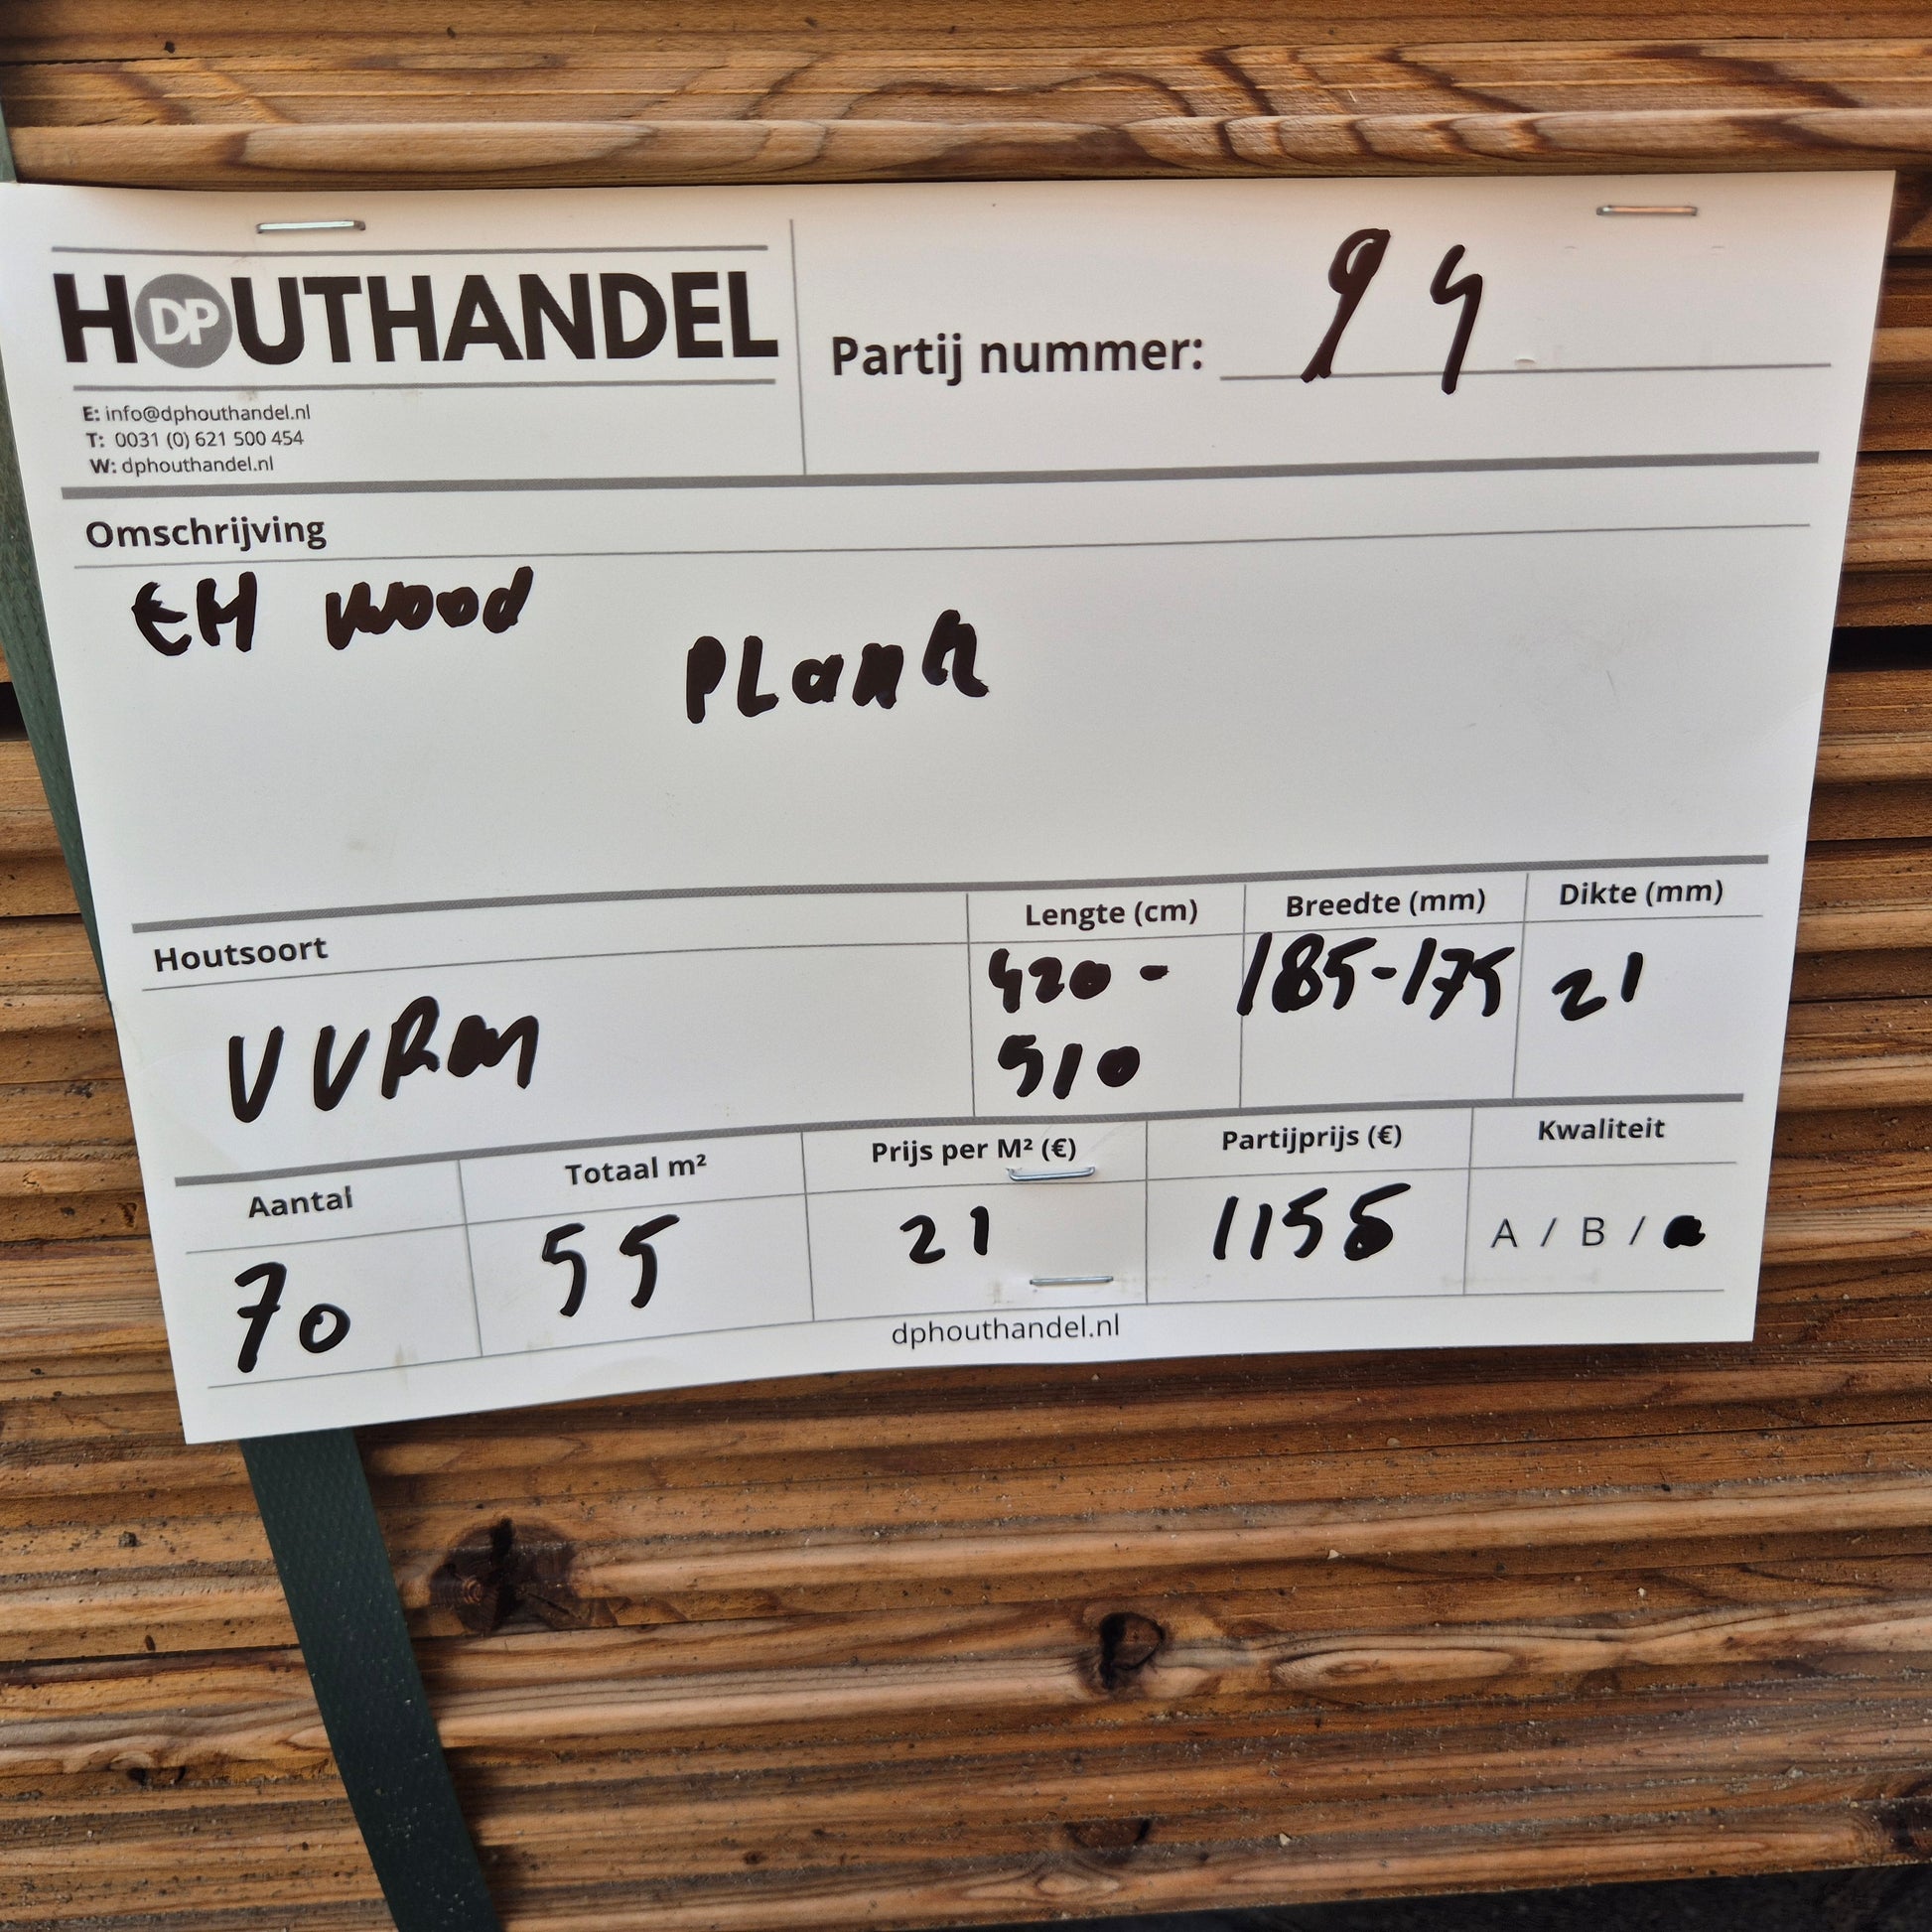 HOUTHANDEL
DP
E: info@dphouthandel.nl
T: 0031 (0) 621 500 454
W: dphouthandel.nl
Partij nummer: 94
Omschrijving
EH wood
PLANK
Houtsoort
VUREN
Lengte (cm)
420 -
510
Breedte (mm)
185-175
Dikte (mm)
21
Aantal
70
Totaal m²
55
Prijs per M² (€)
21
Partijprijs (€)
1155
Kwaliteit
A / B /
dphouthandel.nl